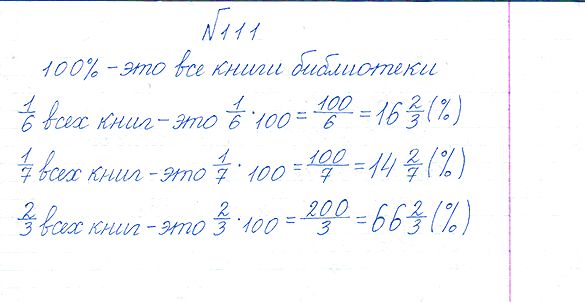 №111
100% - это все книги библиотеки
1/6 всех книг - это 1/6 · 100 = 100/6 = 16 2/3 (%)
1/7 всех книг - это 1/7 · 100 = 100/7 = 14 2/7 (%)
2/3 всех книг - это 2/3 · 100 = 200/3 = 66 2/3 (%)